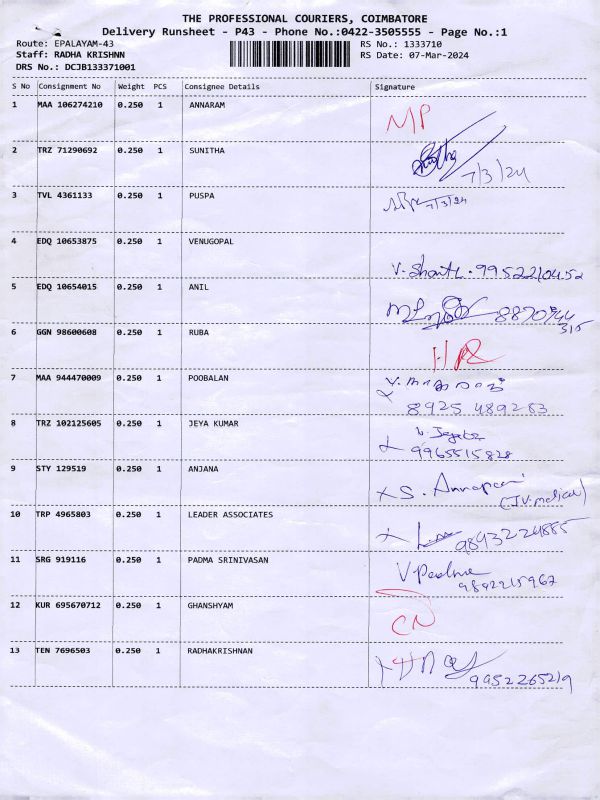 THE PROFESSIONAL COURIERS, COIMBATORE
Delivery Runsheet - P43 - Phone No.:0422-3505555 - Page No.:1
Route: EPALAYAM-43 RS No.: 1333710
Staff: RADHA KRISHNN RS Date: 07-Mar-2024
DRS No.: DCJB133371001
S No Consignment No Weight PCS Consignee Details Signature
1 MAA 106274210 0.250 1 ANNARAM
MP
2 TRZ 71290692 0.250 1 SUNITHA
7/3/24
3 TVL 4361133 0.250 1 PUSPA
7/3/24
4 EDQ 10653875 0.250 1 VENUGOPAL
V. Shanti. 9952210452
5 EDQ 10654015 0.250 1 ANIL
6 GGN 98600608 0.250 1 RUBA
7 MAA 944470009 0.250 1 POOBALAN
8925 489283
8 TRZ 102125605 0.250 1 JEYA KUMAR
9965515828
9 STY 129519 0.250 1 ANJANA
S. Annapoorani
(J.V. medical)
10 TRP 4965803 0.250 1 LEADER ASSOCIATES
9843224885
11 SRG 919116 0.250 1 PADMA SRINIVASAN
V. Padma
9892215967
12 KUR 695670712 0.250 1 GHANSHYAM
CN
13 TEN 7696503 0.250 1 RADHAKRISHNAN
9952265219